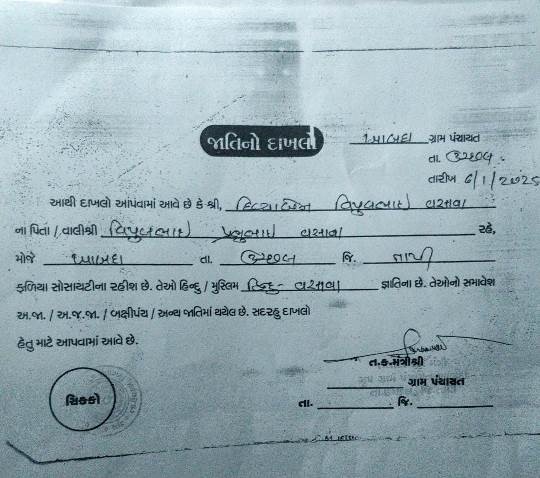 જાતિનો દાખલો
આમલદા ગ્રામ પંચાયત
તા. ઉચ્છલ
તારીખ 6/1/2025
આથી દાખલો આપવામાં આવે છે કે શ્રી, વિપુલભાઈ વસાવા
ના પિતા / વાલીશ્રી વિપુલભાઈ પ્રભુભાઈ વસાવા રહે,
મોજે તા. ઉચ્છલ જિ. તાપી
ફળિયા સોસાયટીના રહીશ છે. તેઓ હિન્દુ / મુસ્લિમ હિન્દુ - વસાવા જ્ઞાતિના છે. તેઓનો સમાવેશ
અ.જા. / અ.જ.જા. / બક્ષીપંચ / અન્ય જાતિમાં થયેલ છે. સદરહુ દાખલો
હેતુ માટે આપવામાં આવે છે.
ત.ક.મંત્રીશ્રી
ગ્રામ પંચાયત
તા. જિ.
સિક્કો